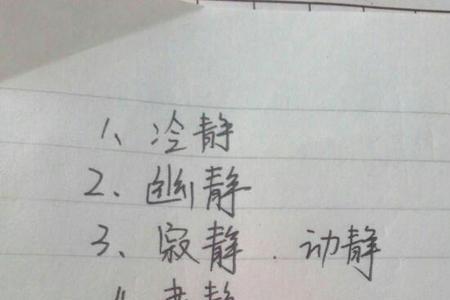 1、冷静
2、幽静
3、寂静.动静